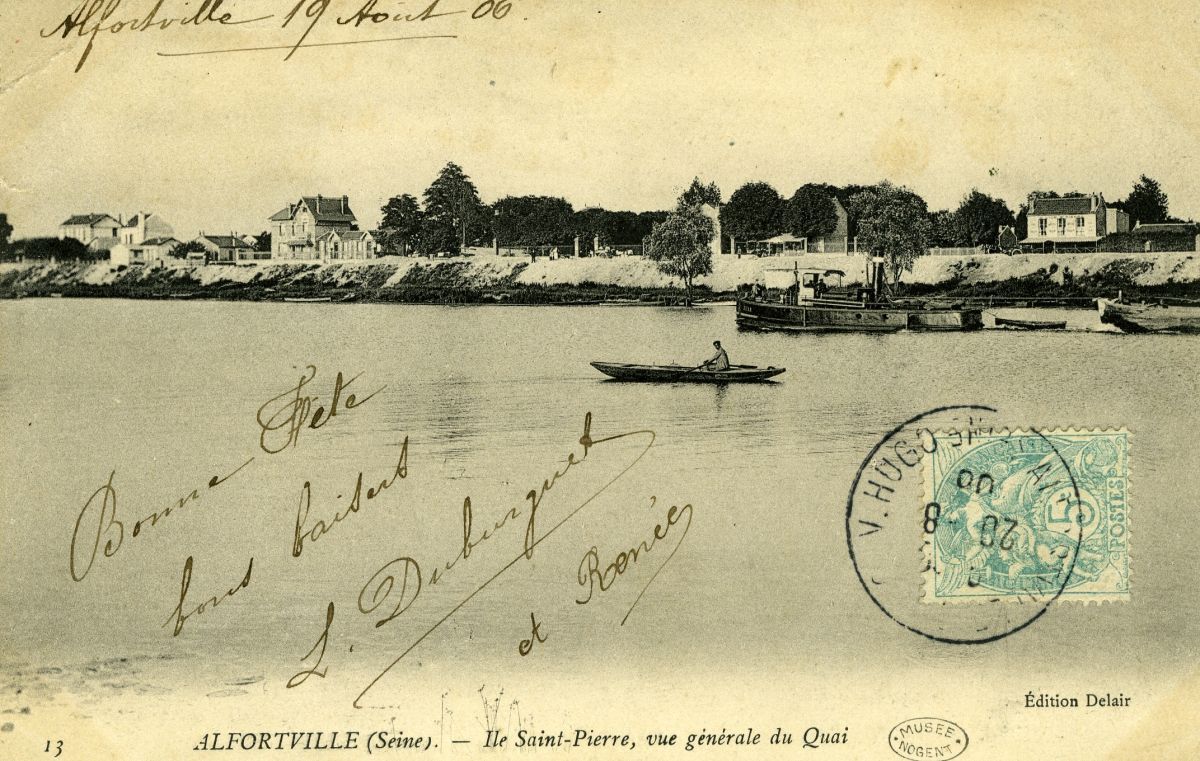 Alfortville 19 Août 06.
Bonne Fête
bons baisers
L. Duburguet
et Renée
V. HUGO
20 -8
06
5
POSTES
Édition Delair
13
ALFORTVILLE (Seine). — Ile Saint-Pierre, vue générale du Quai
MUSÉE
NOGENT